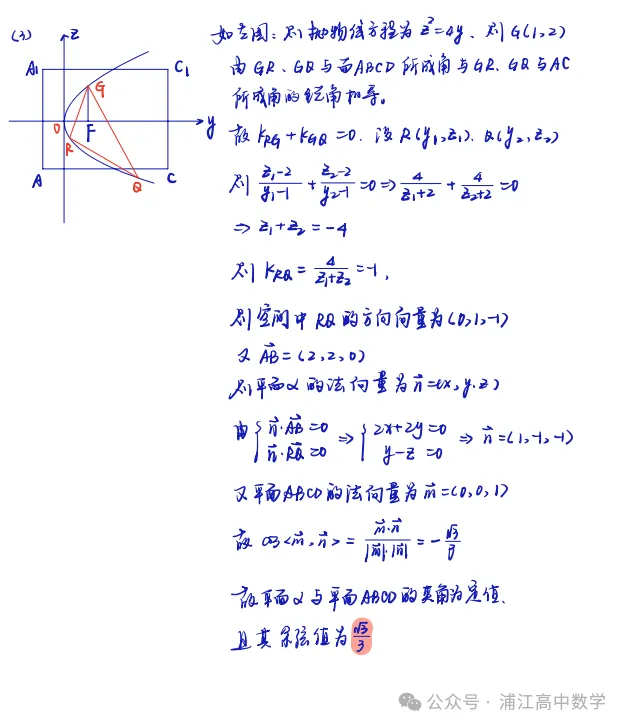 (3)
z
A₁
C₁
G
O
F
y
R
A
Q
C
如左图：则抛物线方程为 z²=4y. 则 G(1,2)
由 GR、GQ 与面ABCD 所成角与GR、GQ与AC
所成角的锐角相等。
故 k_RG + k_GQ = 0. 设 R(y₁,z₁). Q(y₂,z₂)
则 (z₁-2)/(y₁-1) + (z₂-2)/(y₂-1) = 0 ⇒ 4/(z₁+2) + 4/(z₂+2) = 0
⇒ z₁+z₂ = -4
则 k_RQ = 4/(z₁+z₂) = -1,
则空间中 RQ 的方向向量为 (0,1,-1)
又 AB→ = (2,2,0)
则平面α的法向量为 n→=(x,y,z)
由 { n→·AB→=0 n→·RQ→=0 ⇒ { 2x+2y=0 y-z=0 ⇒ n→=(1,-1,-1)
又平面ABCD的法向量为 m→=(0,0,1)
故 cos<m→,n→> = m→·n→/(|m→|·|n→|) = -√3/3
故平面α与平面ABCD的夹角为定值.
且其余弦值为 √3/3
公众号 · 浦江高中数学